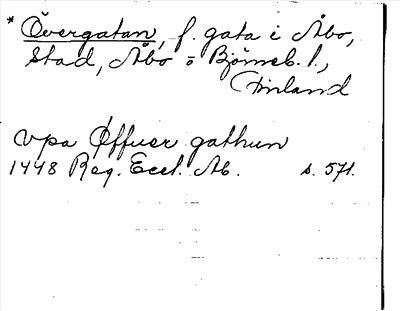 * Övergatan, f. gata i Åbo,
Stad, Åbo o Björneb. l.,
Finland
vpa Øffuer gathun
1448 Reg. Eccl. Ab. s. 571.